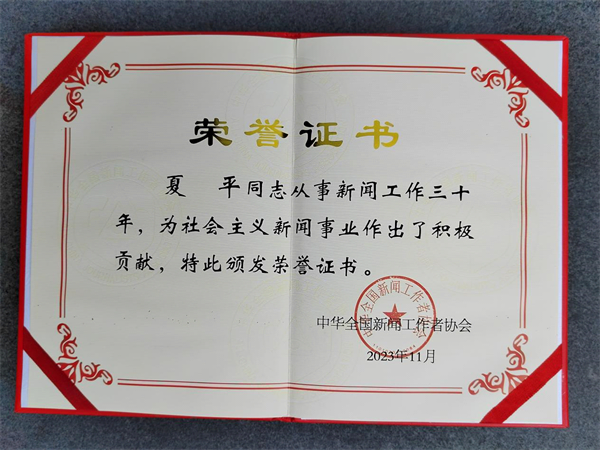 荣誉证书
夏 平同志从事新闻工作三十
年，为社会主义新闻事业作出了积极
贡献，特此颁发荣誉证书。
中华全国新闻工作者协会
中华全国新闻工作者协会
2023年11月